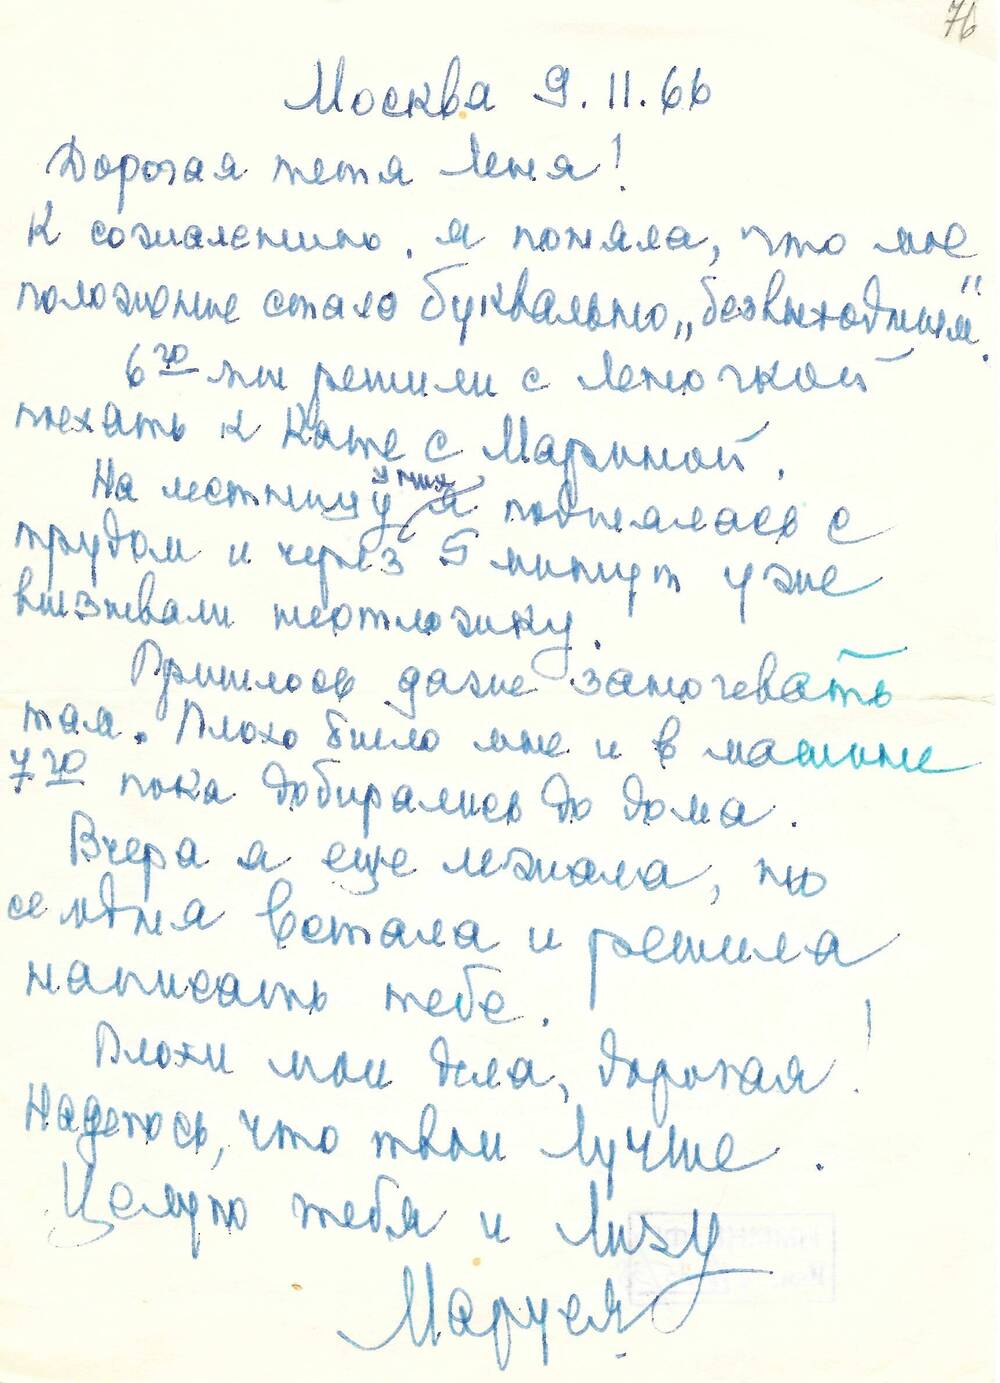 76
Москва 9.11.66
Дорогая тетя Леня!
К сожалению, я поняла, что мое
положение стало буквально „безвыходным".
6го мы решили с Леночкой
поехать к Кате с Мариной.
На лестницу у них я поднялась с
трудом и через 5 минут уже
вызывали неотложку.
Пришлось даже заночевать
там. Плохо было мне и в машине
7го пока добирались до дома.
Вчера я еще лежала, но
сегодня встала и решила
написать тебе.
Плохи мои дела, дорогая!
Надеюсь, что твои лучше.
Целую тебя и Лизу
Маруся.